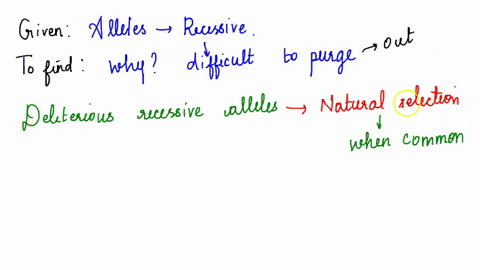 Given: Alleles → Recessive.
To find: why? difficult to purge → out
Deleterious recessive alleles → Natural selection
↓
when common